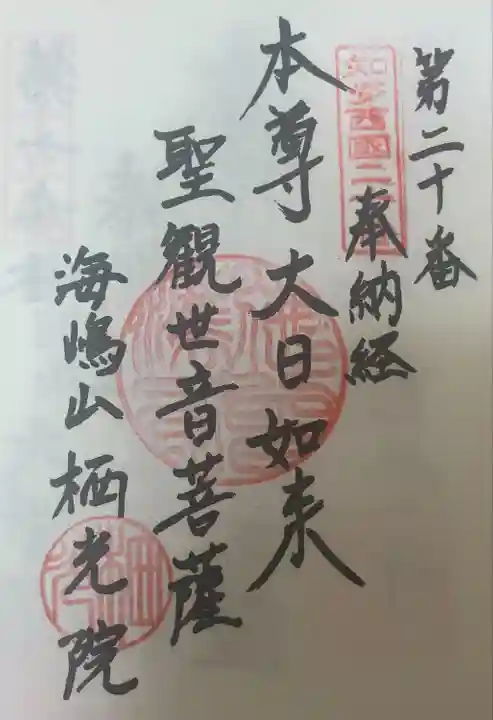 第二十番
知多西國二
奉納経
本尊大日如来
聖観世音菩薩
海嶋山栖光院